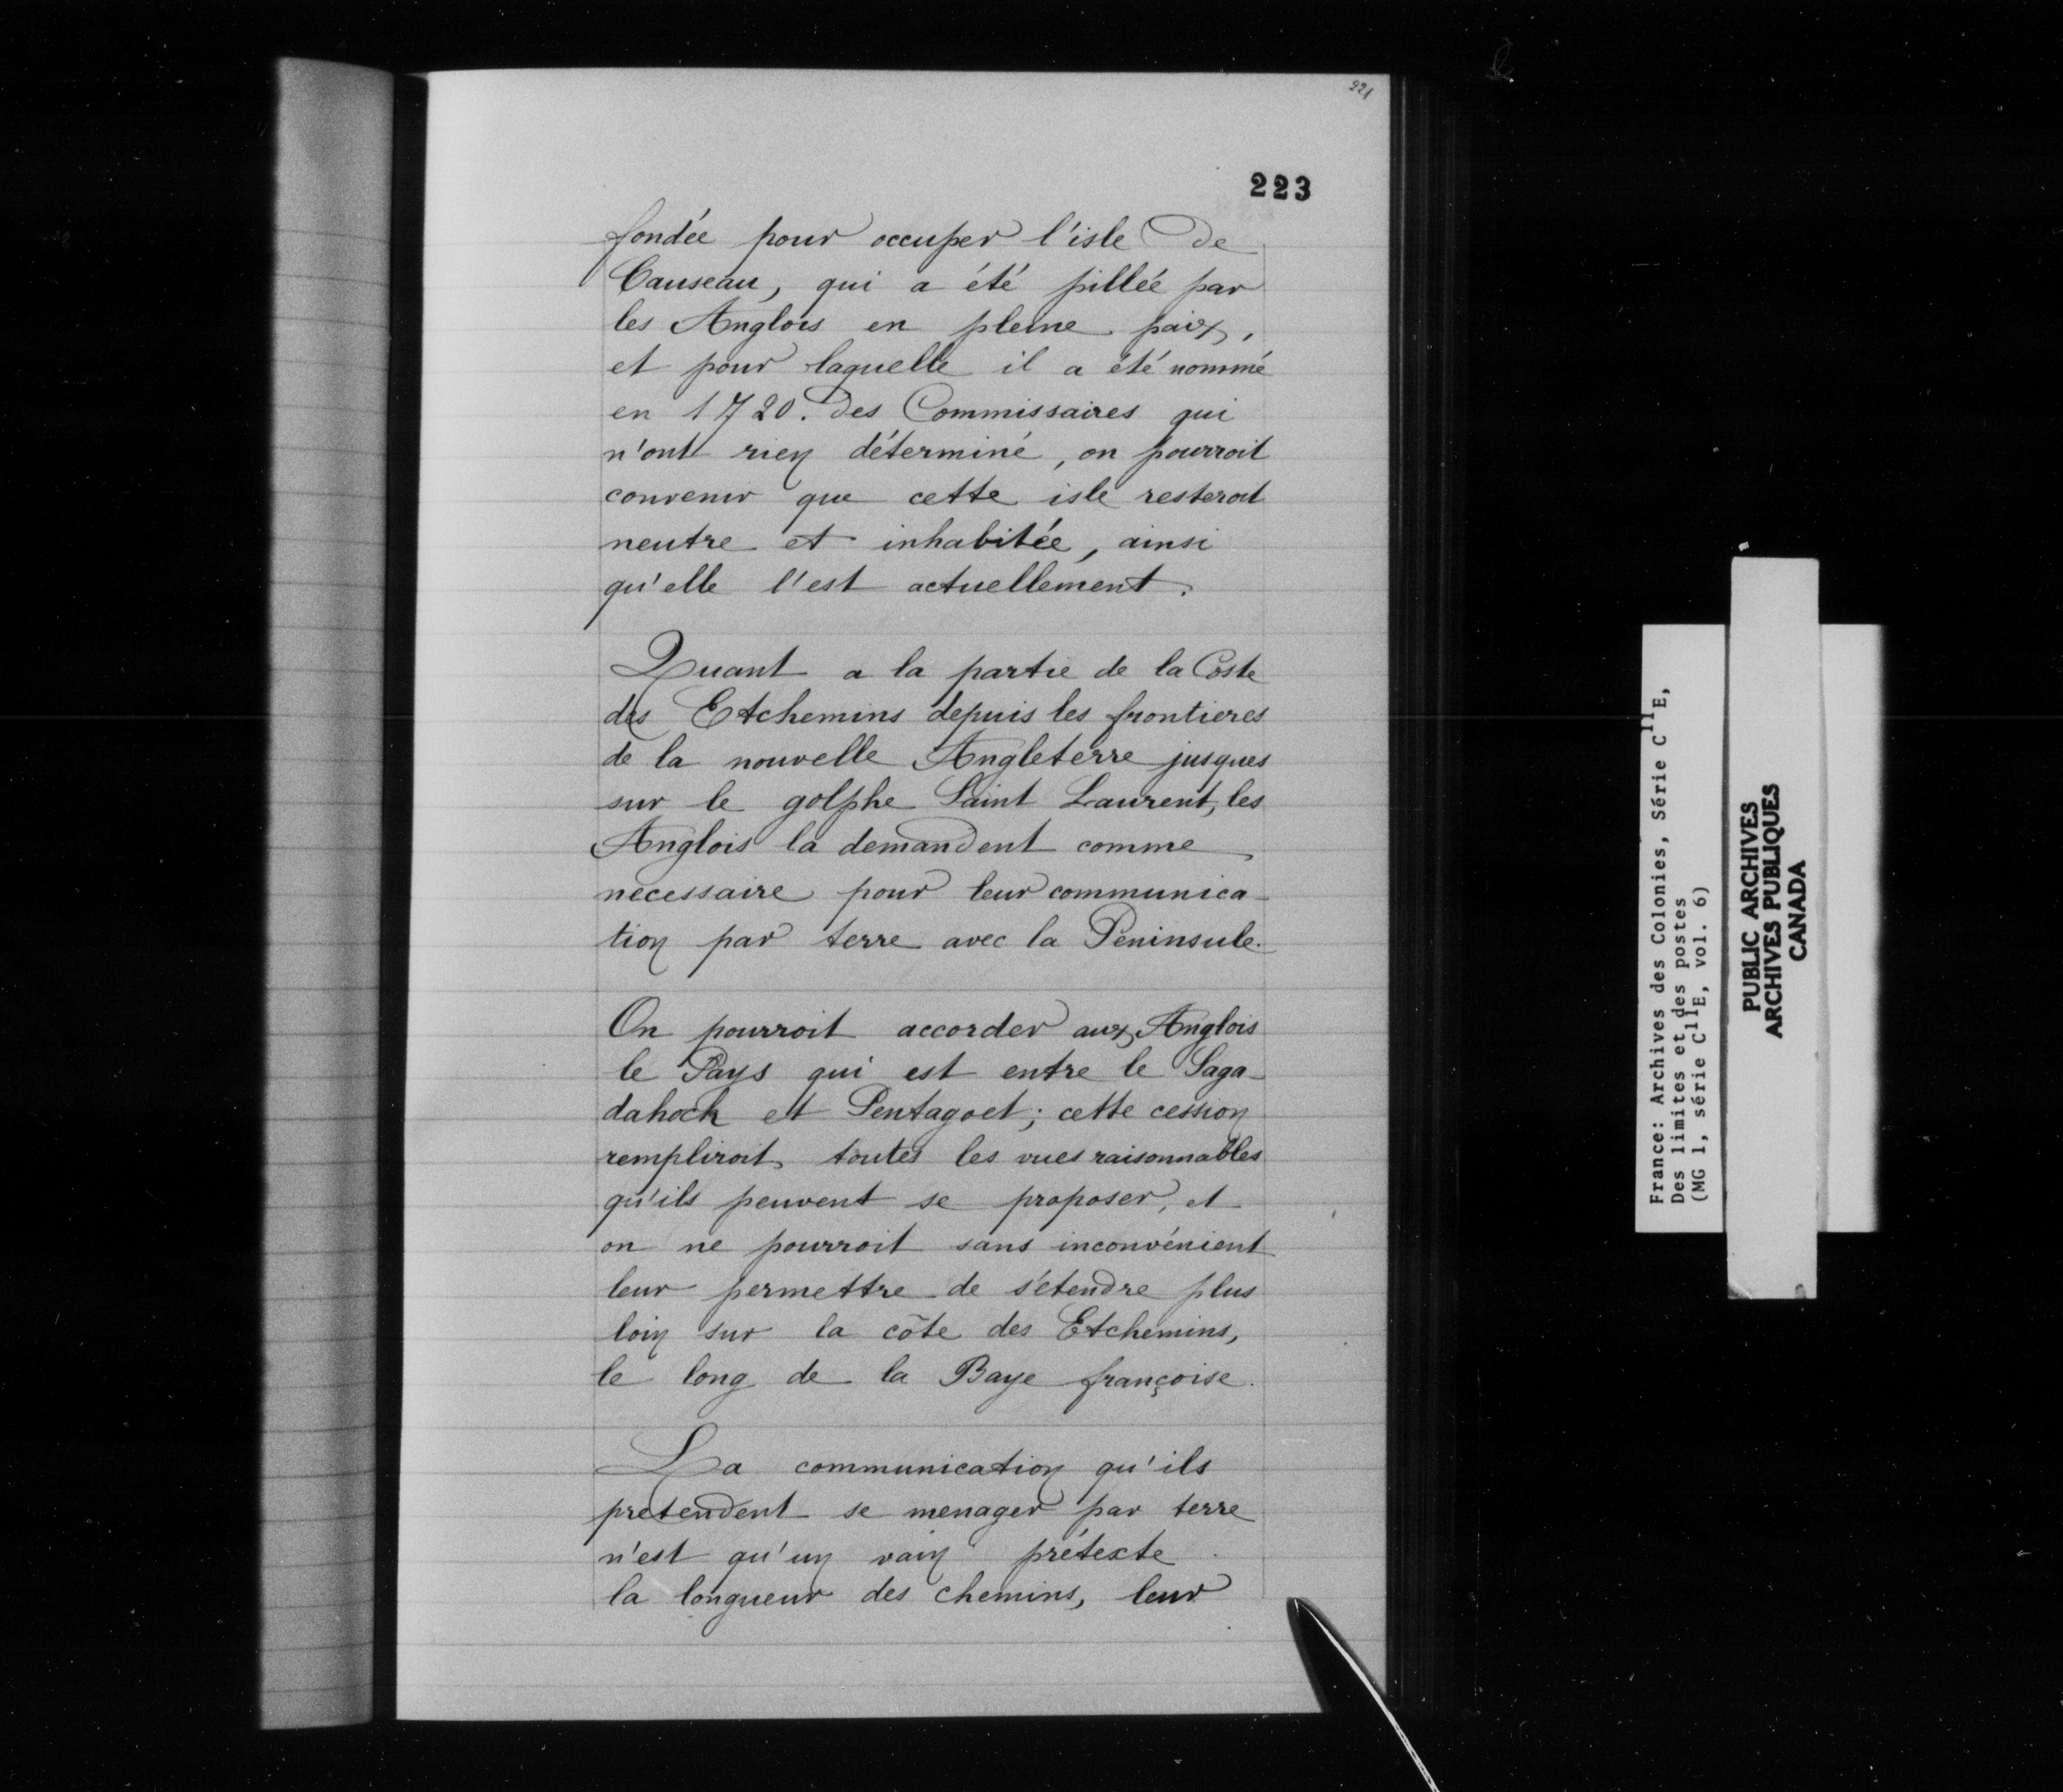 221
223
fondée pour occuper l'isle de
Causeau, qui a été pillée par
les Anglois en pleine paix,
et pour laquelle il a été nommé
en 1720. des Commissaires qui
n'ont rien déterminé, on pourroit
convenir que cette isle resteroit
neutre et inhabitée, ainsi
qu'elle l'est actuellement.
Quant a la partie de la Coste
des Etchemins depuis les frontieres
de la nouvelle Angleterre jusques
sur le golphe Saint Laurent, les
Anglois la demandent comme
necessaire pour leur communica-
tion par terre avec la Peninsule.
On pourroit accorder aux Anglois
le Pays qui est entre le Saga-
dahock et Pentagoet; cette cession
rempliroit toutes les vues raisonnables
qu'ils peuvent se proposer, et
on ne pourroit sans inconvénient
leur permettre de s'étendre plus
loin sur la côte des Etchemins,
le long de la Baye françoise.
La communication qu'ils
pretendent se menager par terre
n'est qu'un vain prétexte
la longueur des chemins, leur
France: Archives des Colonies, Série C11E,
Des limites et des postes
(MG 1, série C11E, vol. 6)
PUBLIC ARCHIVES
ARCHIVES PUBLIQUES
CANADA